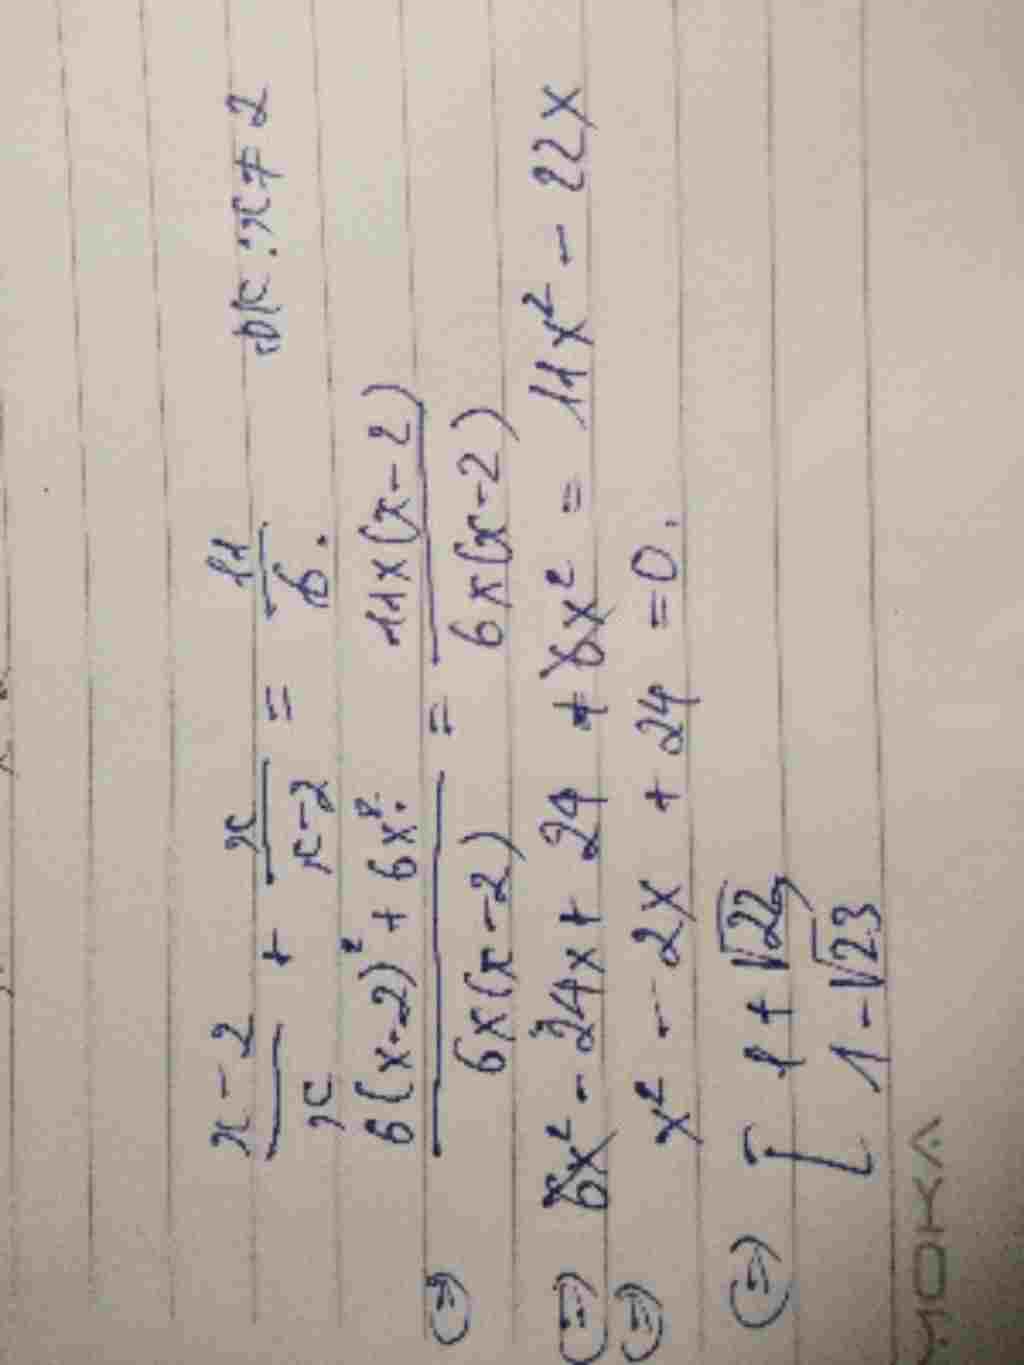 x - 2 / x + x / x - 2 = 11 / 6. đk : x ≠ 2
(=) 6(x-2)² + 6x². / 6x(x-2) = 11x(x-2) / 6x(x-2)
(=) 6x² - 24x + 24 + 6x² = 11x² - 22x
(=) x² - 2x + 24 = 0.
(=) [ 1 + √22,
1 - √23
MOKA